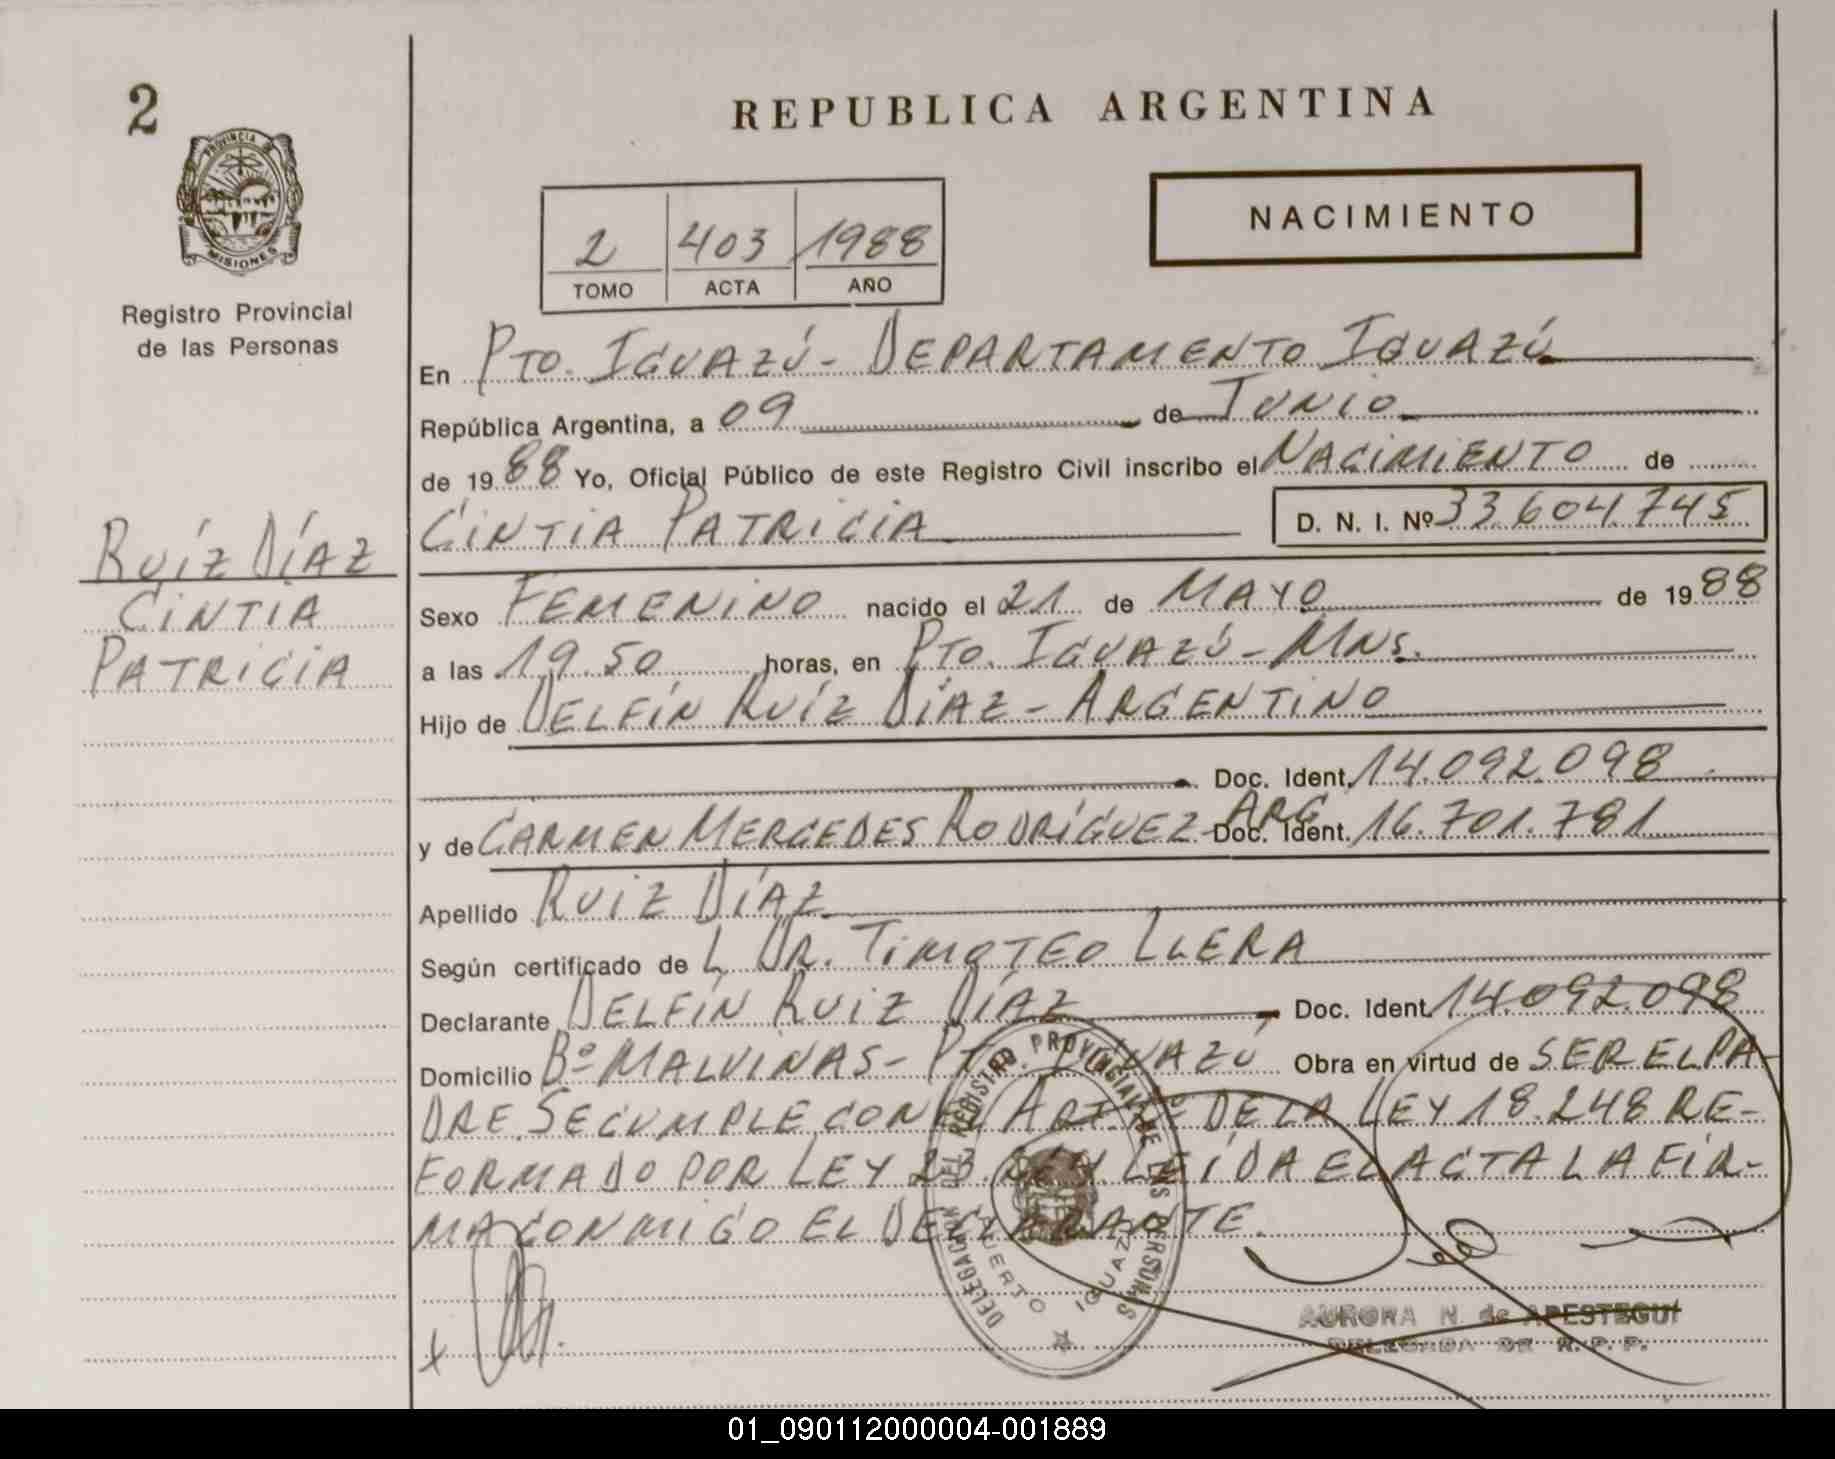 2
PROVINCIA DE
MISIONES
Registro Provincial
de las Personas
RUÍZ DÍAZ
CINTIA
PATRICIA
REPUBLICA ARGENTINA
NACIMIENTO
2 403 1988
TOMO ACTA AÑO
En PTO. IGUAZÚ - DEPARTAMENTO IGUAZÚ
República Argentina, a 09 de JUNIO
de 1988 Yo, Oficial Público de este Registro Civil inscribo el NACIMIENTO de
CINTIA PATRICIA D. N. I. Nº 33.604.745
Sexo FEMENINO nacido el 21 de MAYO de 1988
a las 19.50 horas, en PTO. IGUAZÚ - MNS.
Hijo de DELFÍN RUÍZ DÍAZ - ARGENTINO
Doc. Ident. 14.092.098
y de CARMEN MERCEDES RODRÍGUEZ - ARG Doc. Ident. 16.701.781
Apellido RUIZ DÍAZ
Según certificado de L DR. TIMOTEO LLERA
Declarante DELFÍN RUIZ DÍAZ Doc. Ident. 14.092.098
Domicilio Bº MALVINAS - PTO. IGUAZÚ Obra en virtud de SER EL PA-
DRE. SE CUMPLE CON EL ART. DE LA LEY 18.248 RE-
FORMADO POR LEY 23. LEÍDA EL ACTA LA FIR-
MA CONMIGO EL DECLARANTE.
DELEGACION DEL REGISTRO PROVINCIAL DE LAS PERSONAS
PUERTO IGUAZU
AURORA N. de APESTEGUI
DELEGADA DE R. P. P.
01_090112000004-001889